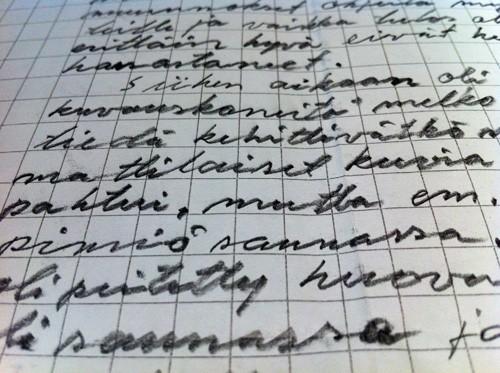 ohjeita
teille ja vaikka tulos
erittäin hyvä eivät
harrastaneet.
Siihen aikaan oli
kuvauskoneita melko
tiedä kehittivätkö
mattilaiset kuvia
pahtui, mutta em.
pimiö saunassa.
oli peitetty huovu
li saunassa ja